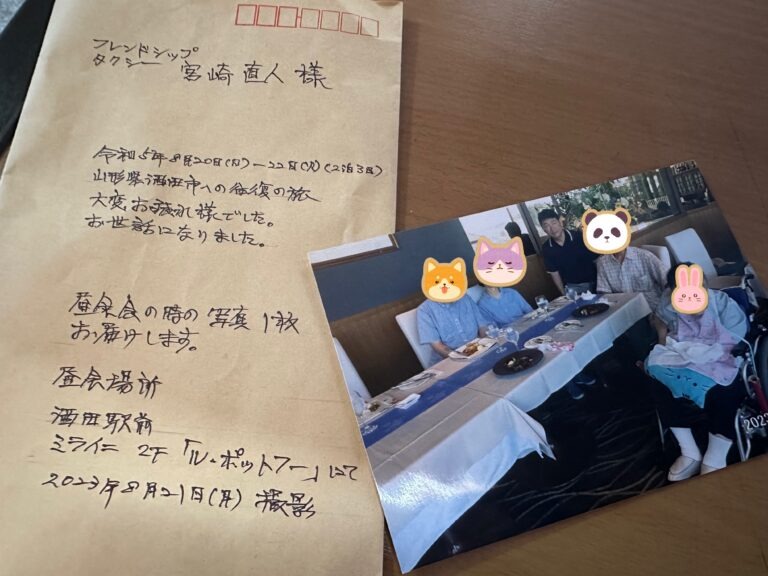 フレンドシップ
タクシー 宮崎直人様
令和5年8月20日(日)ー22日(火)(2泊3日)
山形県酒田市への往復の旅
大変お疲れ様でした。
お世話になりました。
昼食会の時の写真1枚
お届けします。
昼会場所
酒田駅前
ミライニ 2F「ル・ポットフー」にて
2023年8月21日(月)撮影
2023